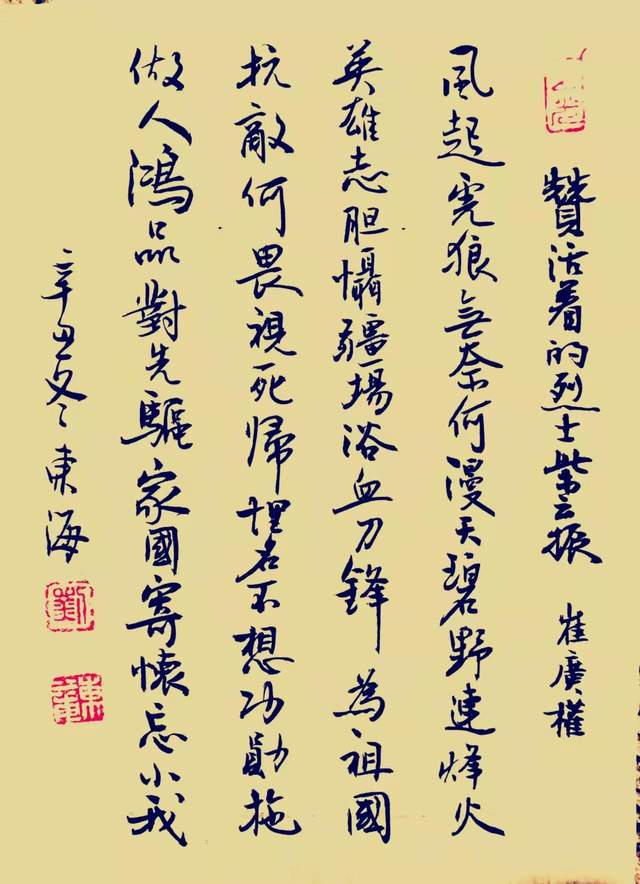 贊活着的烈士柴云振 崔廣權
風起虎狼無奈何漫天碧野連烽火
英雄志胆懾疆場浴血刀鋒 為祖國
抗敵何畏視死歸埋名不想功勛拖
做人鴻品對先驅家國寄懷忘小我
辛丑冬東海
劉